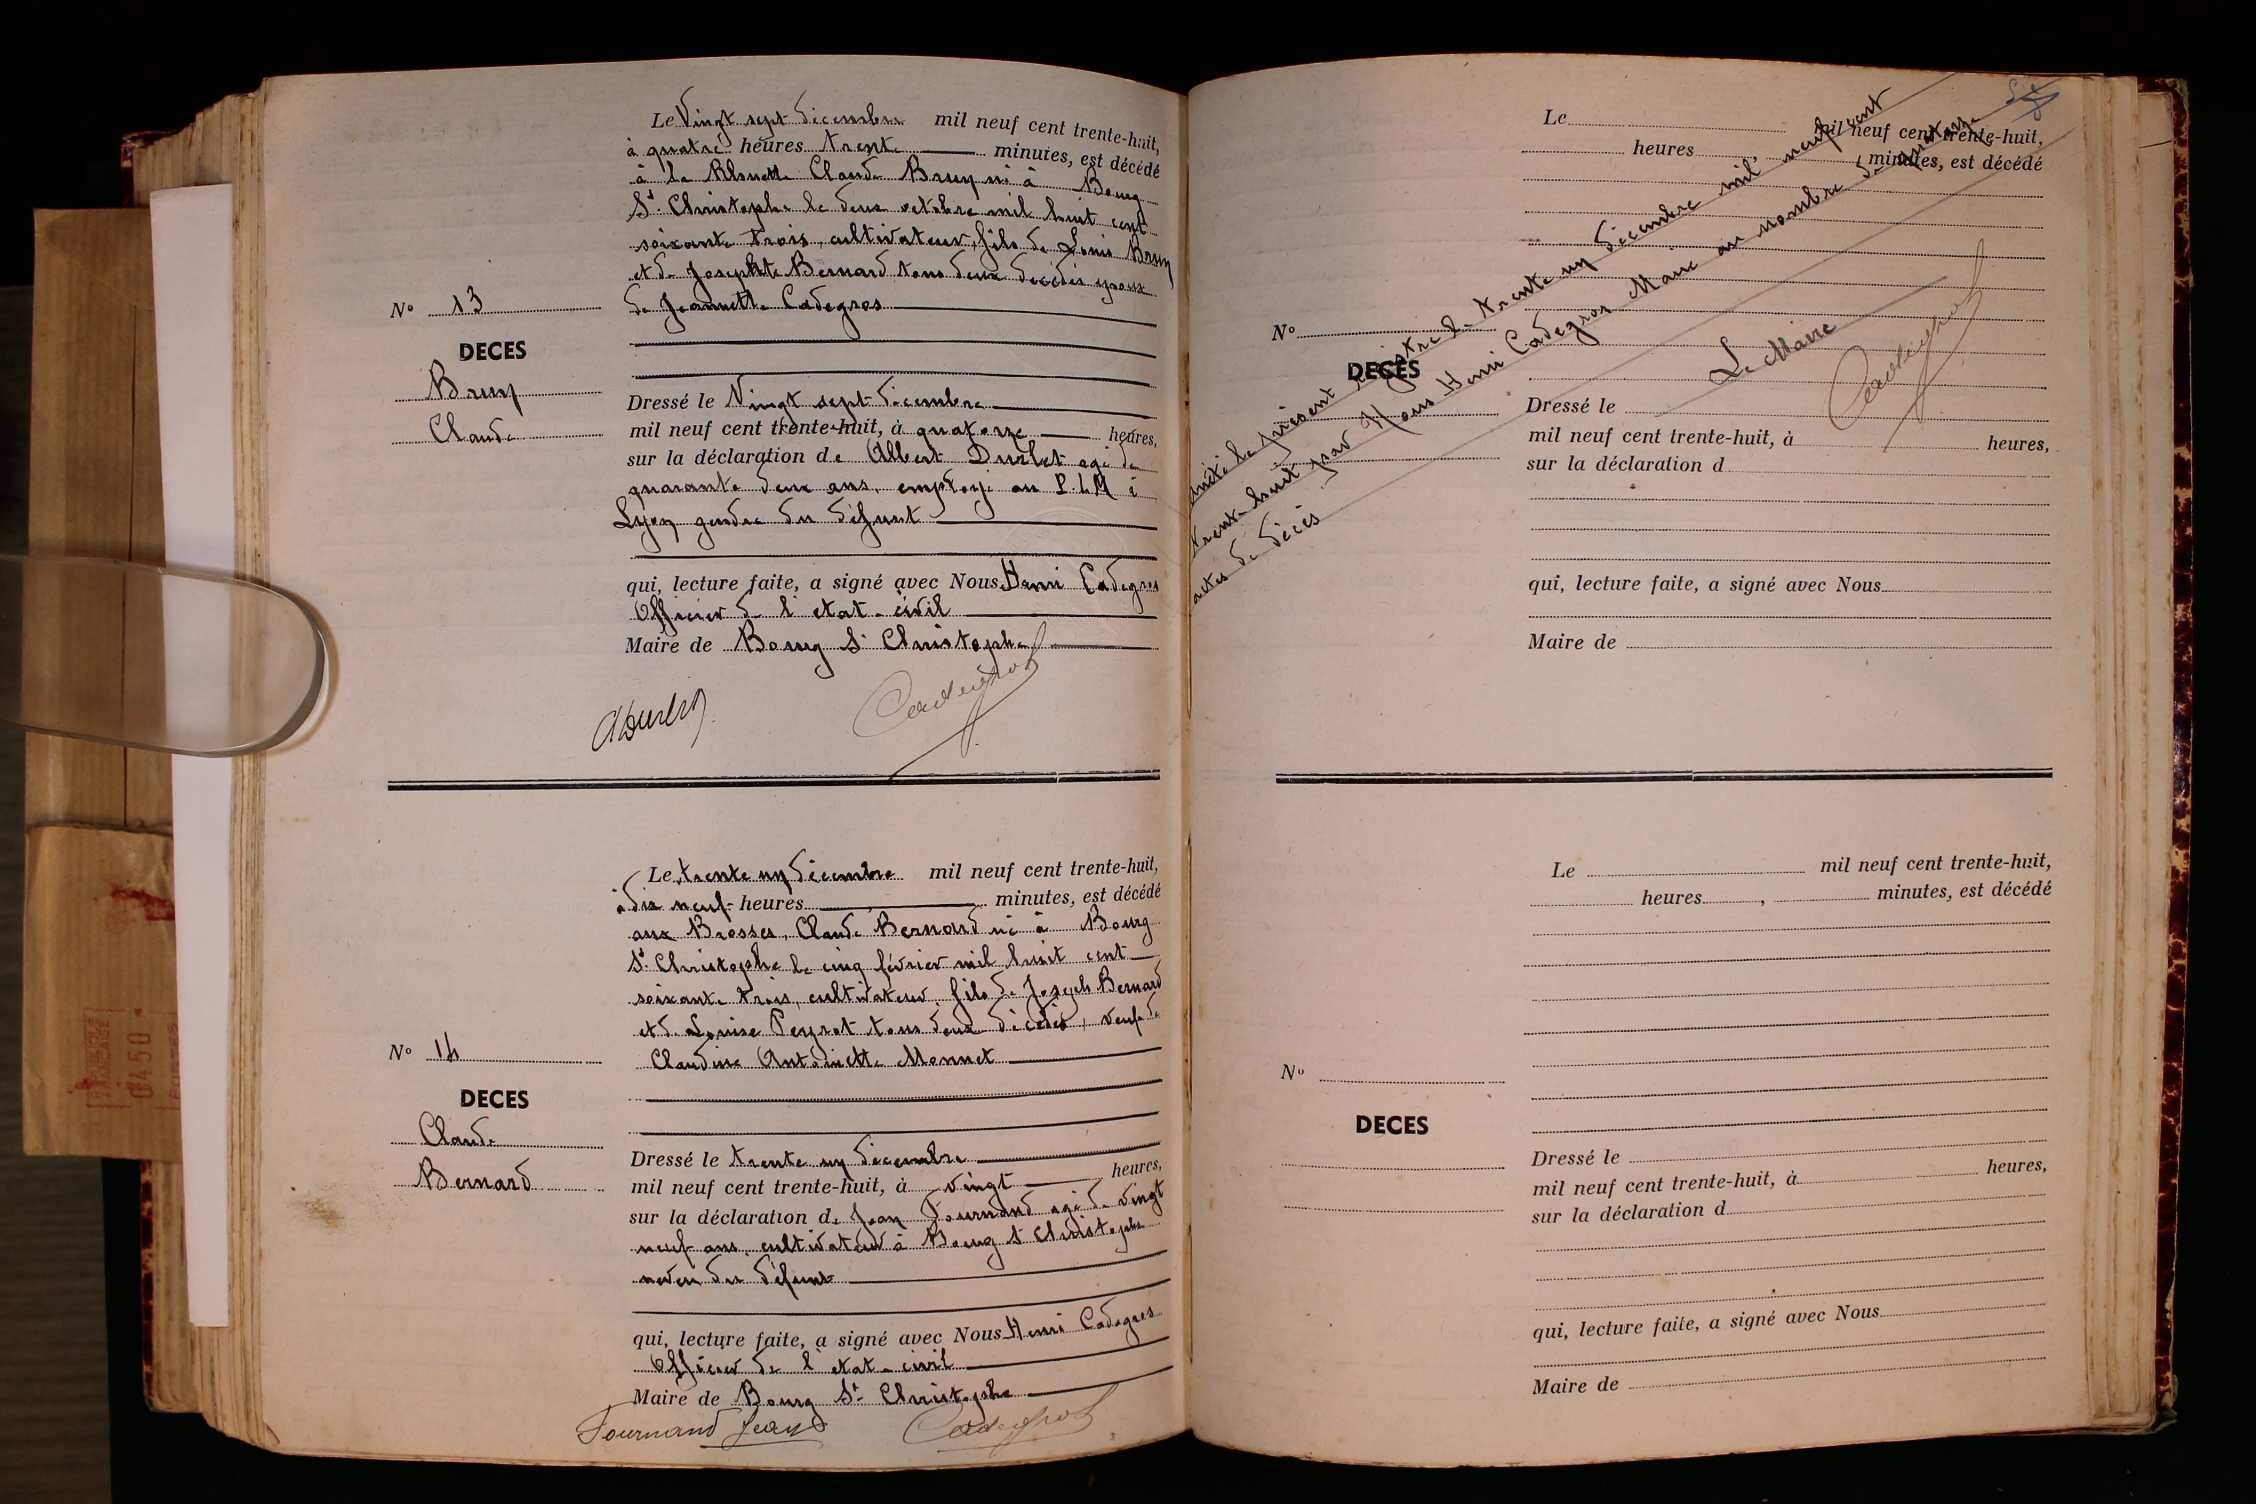 Le Vingt sept décembre mil neuf cent trente-huit,
à quatre heures trente minutes, est décédé
à la Claude Brun né à Bourg
St. Christophe le deux octobre mil huit cent
soixante trois, cultivateur, fils de Louis Brun
et de Josephte Bernard tous deux décédés époux
de Jeannette Cadegros
No 13
DECES
Brun
Claude
Dressé le Vingt sept décembre
mil neuf cent trente-huit, à quatorze heures,
sur la déclaration de Albert Durlet agé de
quarante deux ans, employé au P.L.M à
Lyon gendre du défunt
qui, lecture faite, a signé avec Nous Henri Cadegros
Officier de l'etat-civil
Maire de Bourg St Christophe
ADurlet
Cadegros
Le trente un décembre mil neuf cent trente-huit,
à dix neuf heures minutes, est décédé
aux Brosses, Claude Bernard né à Bourg
St. Christophe le cinq février mil huit cent
soixante trois, cultivateur, fils de Joseph Bernard
et de Louise Peyrot tous deux décédés, veuf de
Claudine Antoinette Monnet
No 14
DECES
Claude
Bernard
Dressé le trente un décembre
mil neuf cent trente-huit, à vingt heures,
sur la déclaration de Jean Fournand agé de vingt
neuf ans, cultivateur à Bourg St Christophe
neveu du défunt
qui, lecture faite, a signé avec Nous Henri Cadegros
Officier de l'etat-civil
Maire de Bourg St Christophe
Fournand Jean
Cadegros
Le mil neuf cent trente-huit,
heures minutes, est décédé
No
DECES
Dressé le
mil neuf cent trente-huit, à heures,
sur la déclaration d
qui, lecture faite, a signé avec Nous
Maire de
Arrêté le présent registre le trente un décembre mil neuf cent
trente huit par Nous Henri Cadegros Maire au nombre de quatorze
actes de décès
Le Maire
Cadegros
Le mil neuf cent trente-huit,
heures, minutes, est décédé
No
DECES
Dressé le
mil neuf cent trente-huit, à heures,
sur la déclaration d
qui, lecture faite, a signé avec Nous
Maire de
0450